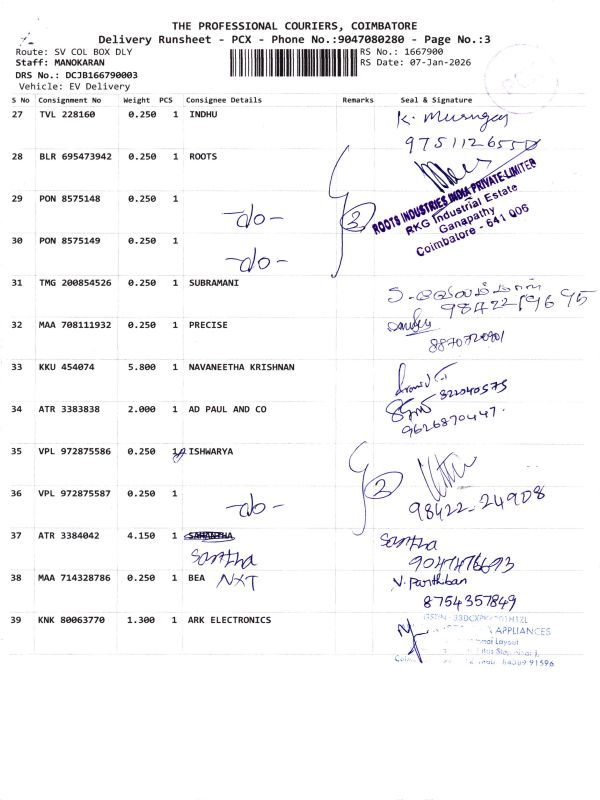 THE PROFESSIONAL COURIERS, COIMBATORE
Delivery Runsheet - PCX - Phone No.:9047080280 - Page No.:3
Route: SV COL BOX DLY
RS No.: 1667900
Staff: MANOKARAN
RS Date: 07-Jan-2026
DRS No.: DCJB166790003
Vehicle: EV Delivery
S No Consignment No Weight PCS Consignee Details Remarks Seal & Signature
27 TVL 228160 0.250 1 INDHU K. Murugan
9751126550
28 BLR 695473942 0.250 1 ROOTS
ROOTS INDUSTRIES INDIA PRIVATE LIMITED
RKG Industrial Estate
Ganapathy
Coimbatore - 641 006
29 PON 8575148 0.250 1
-do- 3
30 PON 8575149 0.250 1
-do-
31 TMG 200854526 0.250 1 SUBRAMANI
98422 19695
32 MAA 708111932 0.250 1 PRECISE
8870720901
33 KKU 454074 5.800 1 NAVANEETHA KRISHNAN
34 ATR 3383838 2.000 1 AD PAUL AND CO
9626870447.
35 VPL 972875586 0.250 1 ISHWARYA
2
36 VPL 972875587 0.250 1
-do- 98422-24908
37 ATR 3384042 4.150 1 SAHANTHA
Santha Santha
9047476693
38 MAA 714328786 0.250 1 BEA NXT V. Parthban
8754357849
39 KNK 80063770 1.300 1 ARK ELECTRONICS
APPLIANCES
Layout
94389 91596